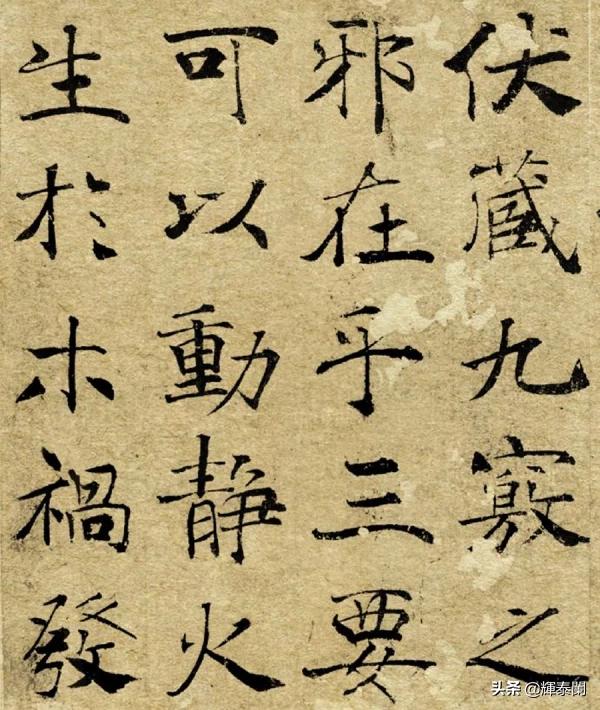 伏藏九竅之
邪在乎三要
可以動靜火
生於木禍發
头条 @輝泰閣